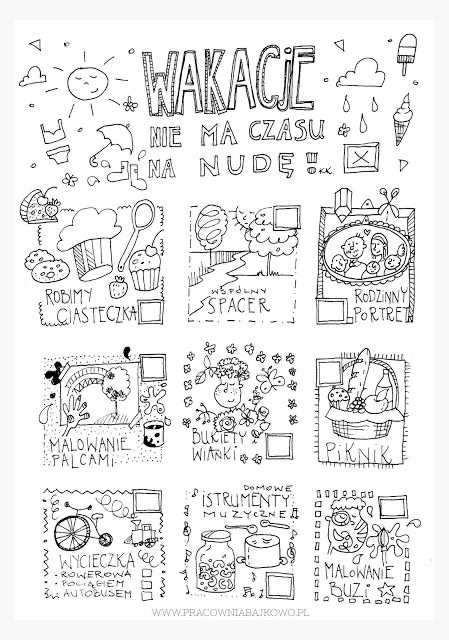 WAKACJE
NIE MA CZASU
NA NUDĘ!
K.K.
ROBIMY
CIASTECZKA
WSPÓLNY
SPACER
RODZINNY
PORTRET
MALOWANIE
PALCAMI
BUKIETY
WIANKI
PIKNIK
WYCIECZKA
ROWEROWA
POCIĄGIEM
AUTOBUSEM
DOMOWE
ISTRUMENTY
MUZYCZNE
MALOWANIE
BUZI
WWW.PRACOWNIABAJKOWO.PL